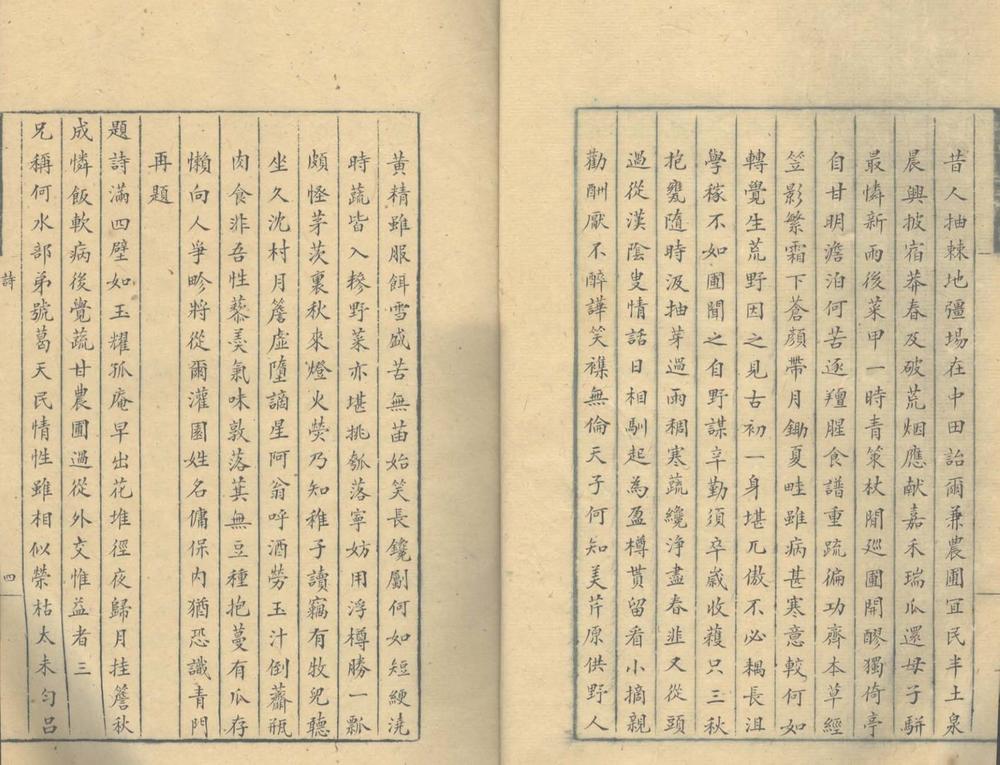 昔人抽棘地彊場在中田詒爾兼農圃冝民半土泉
晨興披宿莽春及破荒烟應献嘉禾瑞瓜還母子駢
最憐新雨後菜甲一時青策杖閒廵圃開醪獨倚亭
自甘明澹泊何苦逐羶腥食譜重䟽徧功齊本草經
笠影繁霜下蒼顏帶月鋤夏畦雖病甚寒意較何如
轉覺生荒野因之見古初一身堪兀傲不必耦長沮
學稼不如圃聞之自野謀辛勤須卒歲收穫只三秋
抱甕隨時汲抽芽過雨稠寒蔬纔淨盡春韭又從頭
過從漢陰叟情話日相馴起為盈樽貰留看小摘親
勸酬厭不醉譁笑襍無倫天子何知美芹原供野人
黃精雖服餌雪盛苦無苗始笑長鑱劚何如短綆澆
時蔬皆入糝野菜亦堪挑瓠落寧妨用浮樽勝一瓢
頗怪茅茨裏秋來燈火熒乃知稚子讀竊有牧兒聽
坐久沈村月簷虛墮謫星阿翁呼酒勞玉汁倒虀瓶
肉食非吾性藜羹氣味敦落萁無豆種抱蔓有瓜存
懶向人爭畛將從爾灌園姓名傭保內猶恐識青門
再題
題詩滿四壁如玉耀孤庵早出花堆徑夜歸月挂簷秋
成憐飯軟病後覺蔬甘農圃過從外交惟益者三
兄稱何水部弟號葛天民情性雖相似榮枯太未勻呂
詩
四